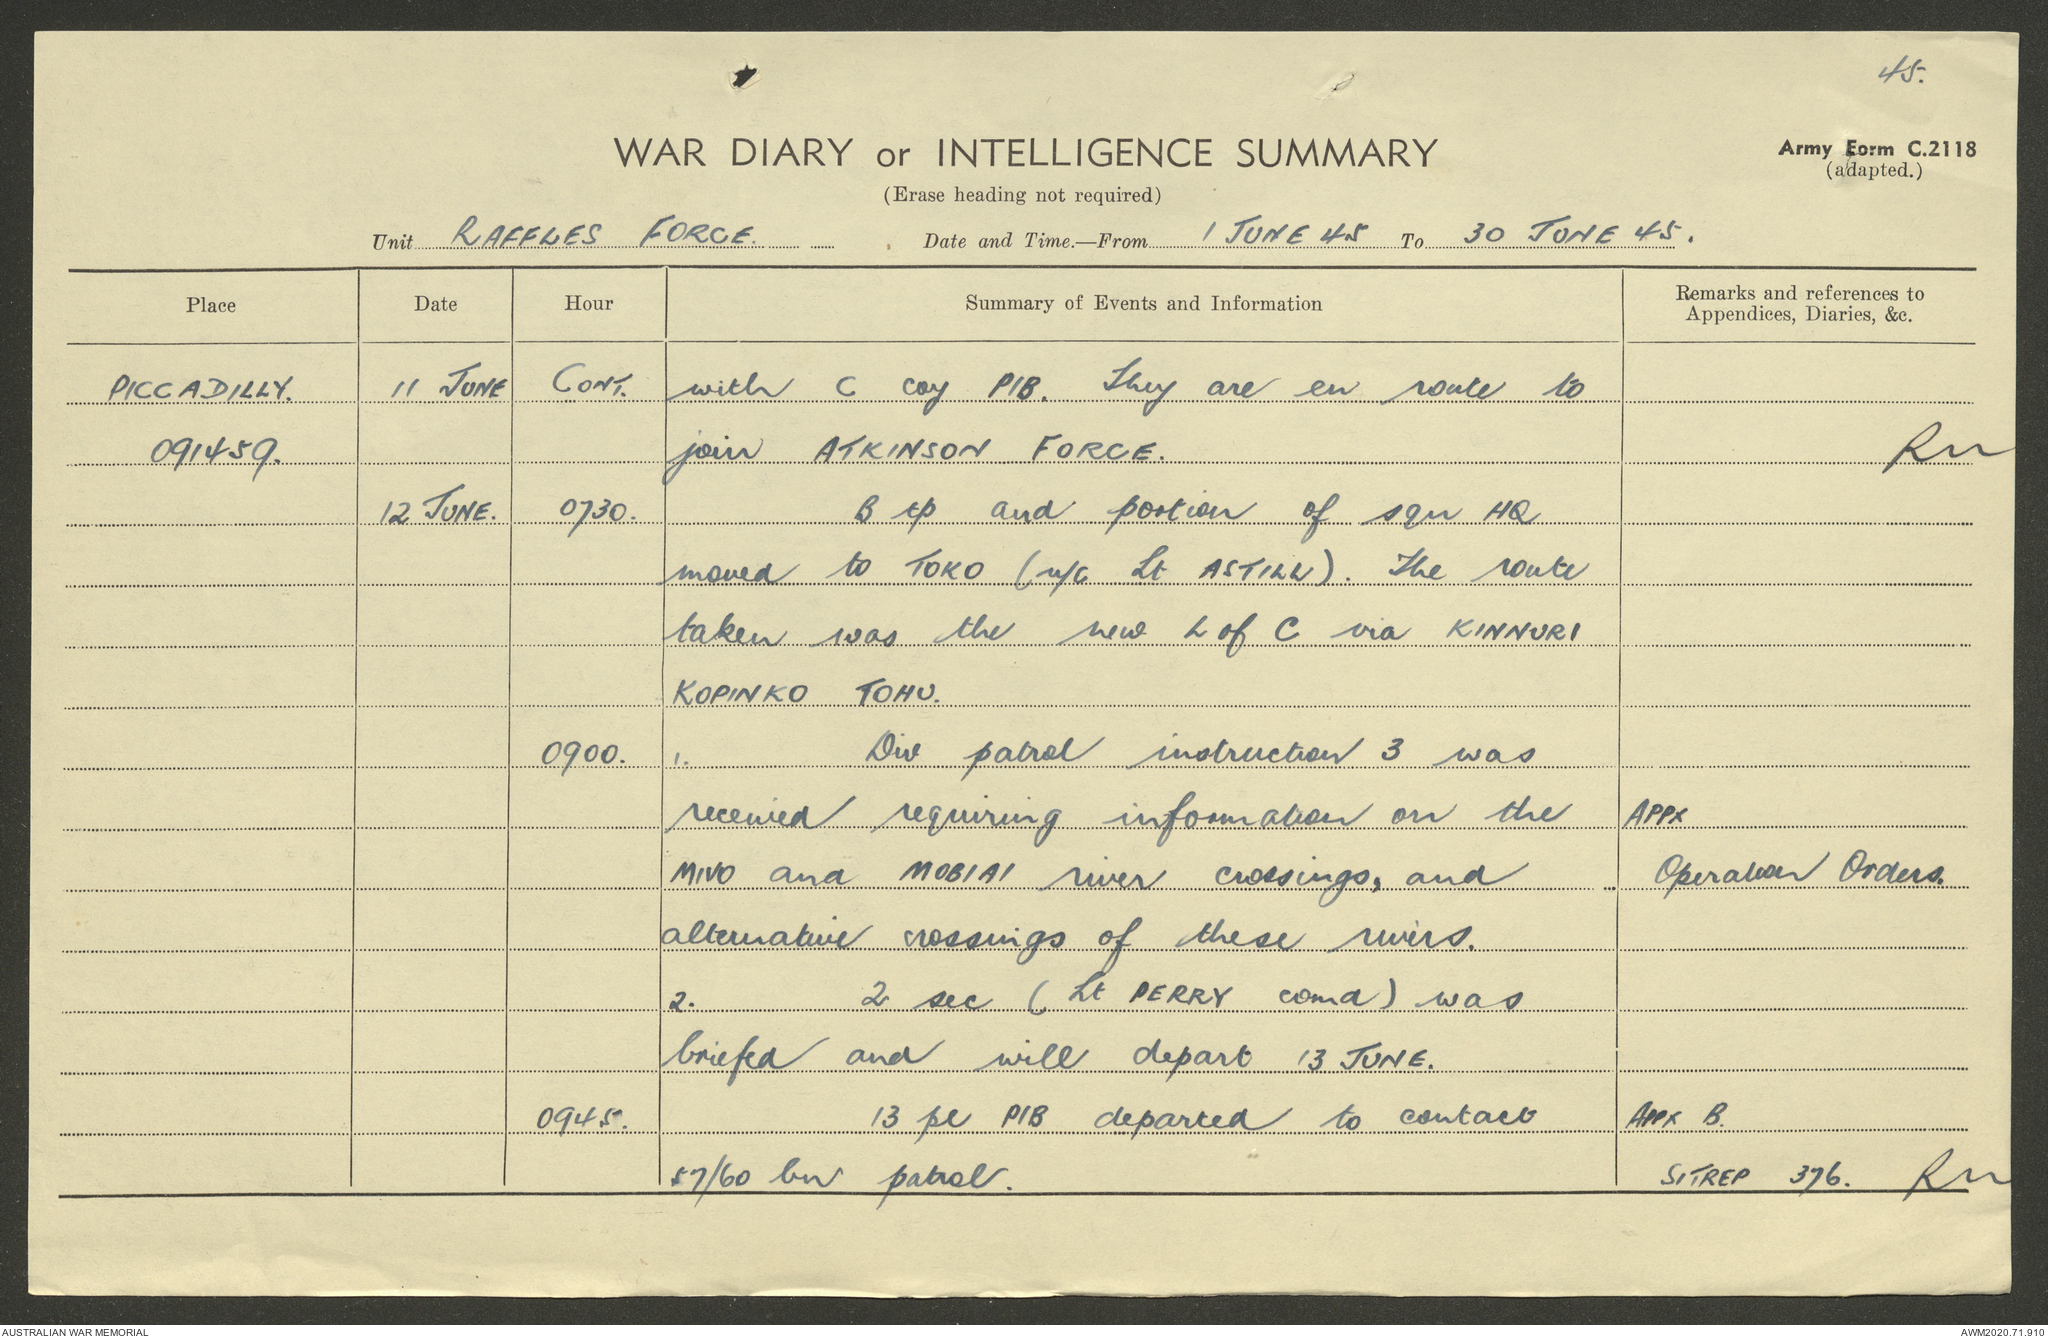 45.
WAR DIARY or INTELLIGENCE SUMMARY
Army Form C.2118
(adapted.)
(Erase heading not required)
Unit RAFFLES FORCE. Date and Time.—From 1 JUNE 45 To 30 JUNE 45.
Place Date Hour Summary of Events and Information Remarks and references to Appendices, Diaries, &c.
PICCADILLY. 11 JUNE CONT. with C coy PIB. They are en route to
091459. join ATKINSON FORCE. Rn
12 JUNE. 0730. B tp and portion of sqn HQ
moved to TOKO (u/c Lt ASTILL). The route
taken was the new L of C via KINNURI
KOPINKO TOHU.
0900. 1. Div patrol instruction 3 was
received requiring information on the APPX
MIVO and MOBIAI river crossings, and Operation Orders.
alternative crossings of these rivers.
2. 2 sec (Lt PERRY comd) was
briefed and will depart 13 JUNE.
0945. 13 pl PIB departed to contact APPX B.
57/60 bn patrol. SITREP 376. Rn
AUSTRALIAN WAR MEMORIAL
AWM2020.71.910